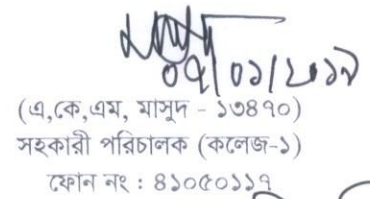 ০৭/০১/২০১৯
(এ,কে,এম, মাসুদ - ১৩৪৭০)
সহকারী পরিচালক (কলেজ-১)
ফোন নং : ৪১০৫০১১৭